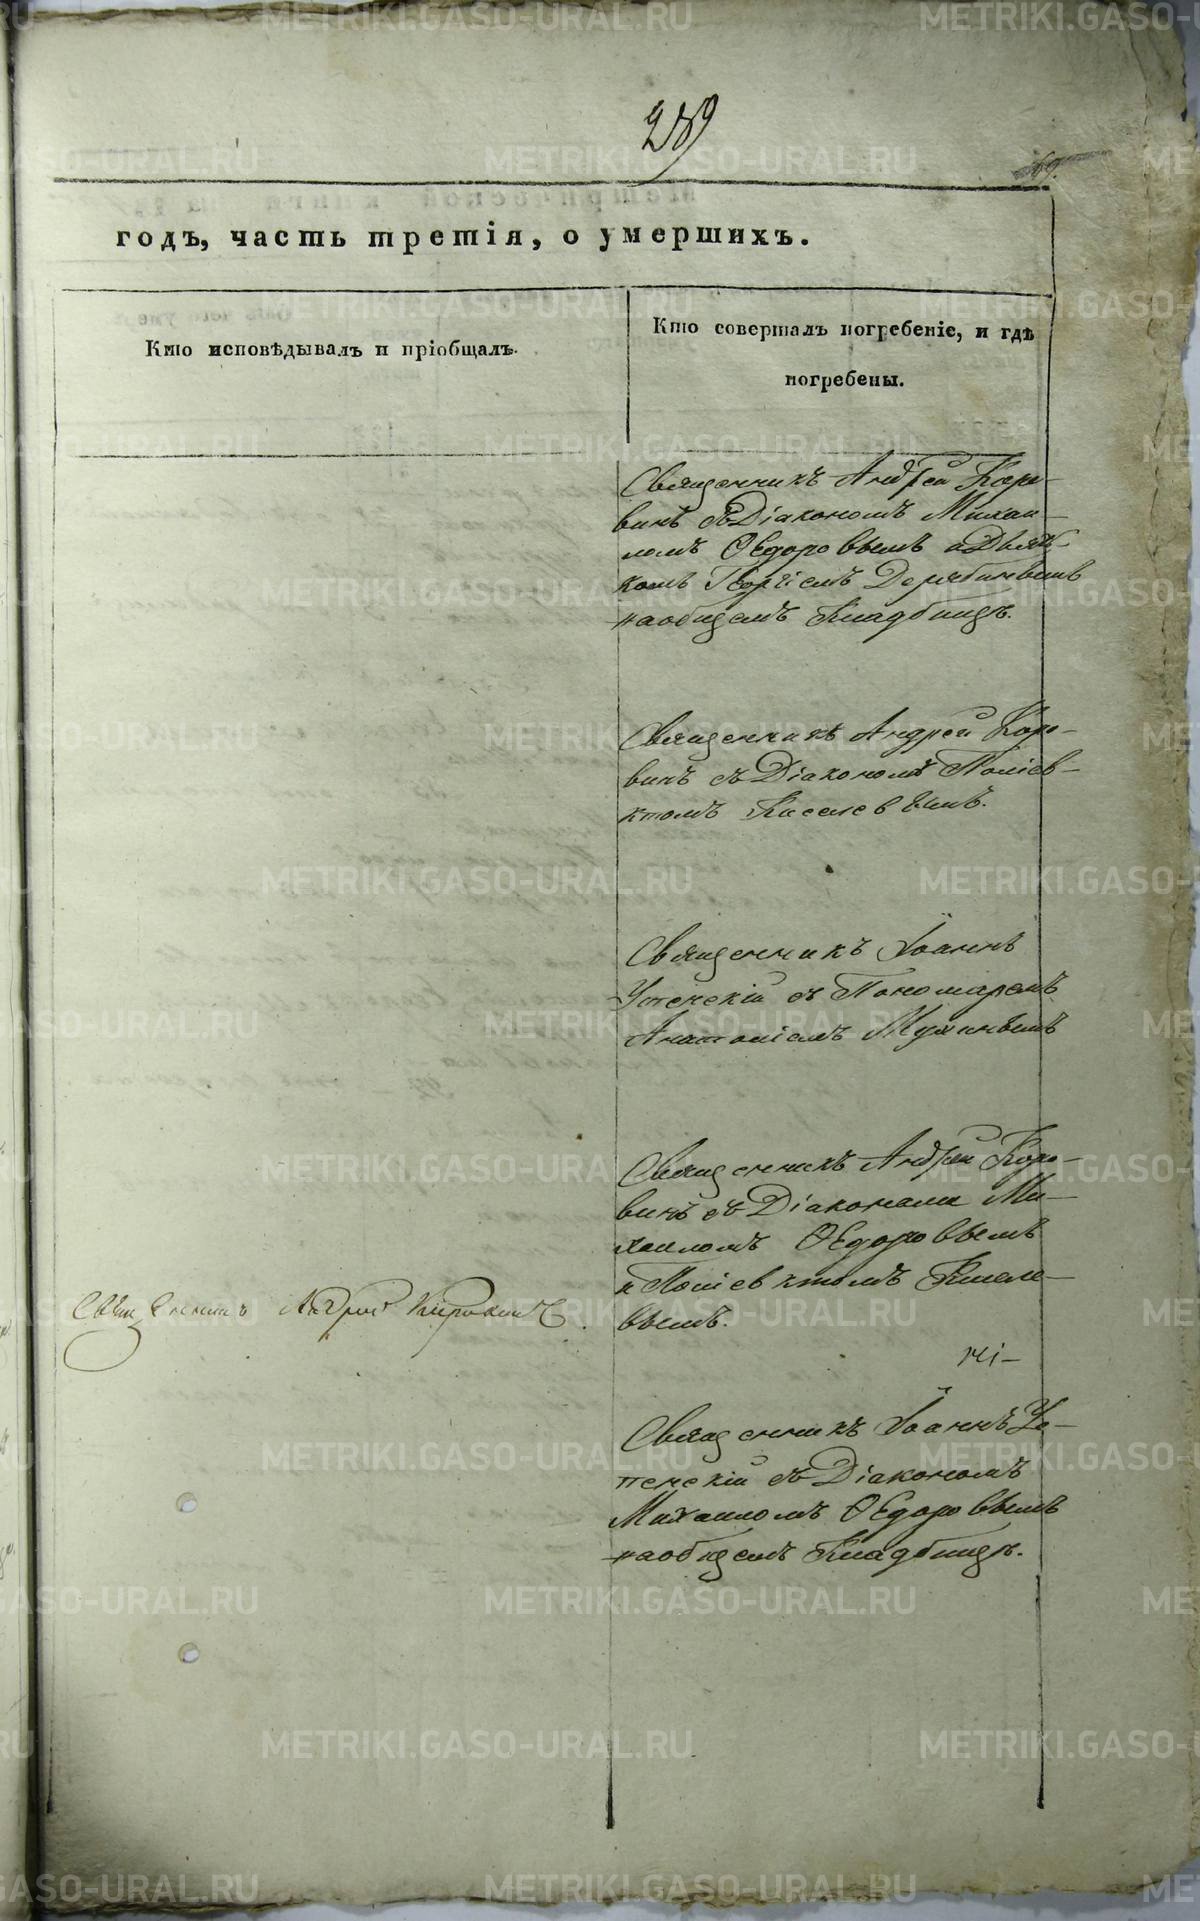 289
69.
годъ, часть третія, о умершихъ.
Кто исповѣдывалъ и пріобщалъ.
Кто совершалъ погребеніе, и гдѣ
погребены.
Священникъ Андрей Коро-
винъ съ Діакономъ Михаи-
ломъ Ѳедоровымъ и Дьяч-
комъ Георгіемъ Дерябинымъ
на общемъ Кладбищѣ.
Священникъ Андрей Коро-
винъ съ Діакономъ Поліев-
ктомъ Киселевымъ.
Священникъ Іоаннъ
Успенскій съ Пономаремъ
Анатоліемъ Мухинымъ
Священникъ Андрей Коро-
винъ съ Діаконами Ми-
хаиломъ Ѳедоровымъ
и Поліевктомъ Киселе-
вымъ.
Священникъ Андрей Коровинъ.
Священникъ Іоаннъ Ус-
пенскій съ Діакономъ
Михаиломъ Ѳедоровымъ
на общемъ Кладбищѣ.
METRIKI.GASO-URAL.RU